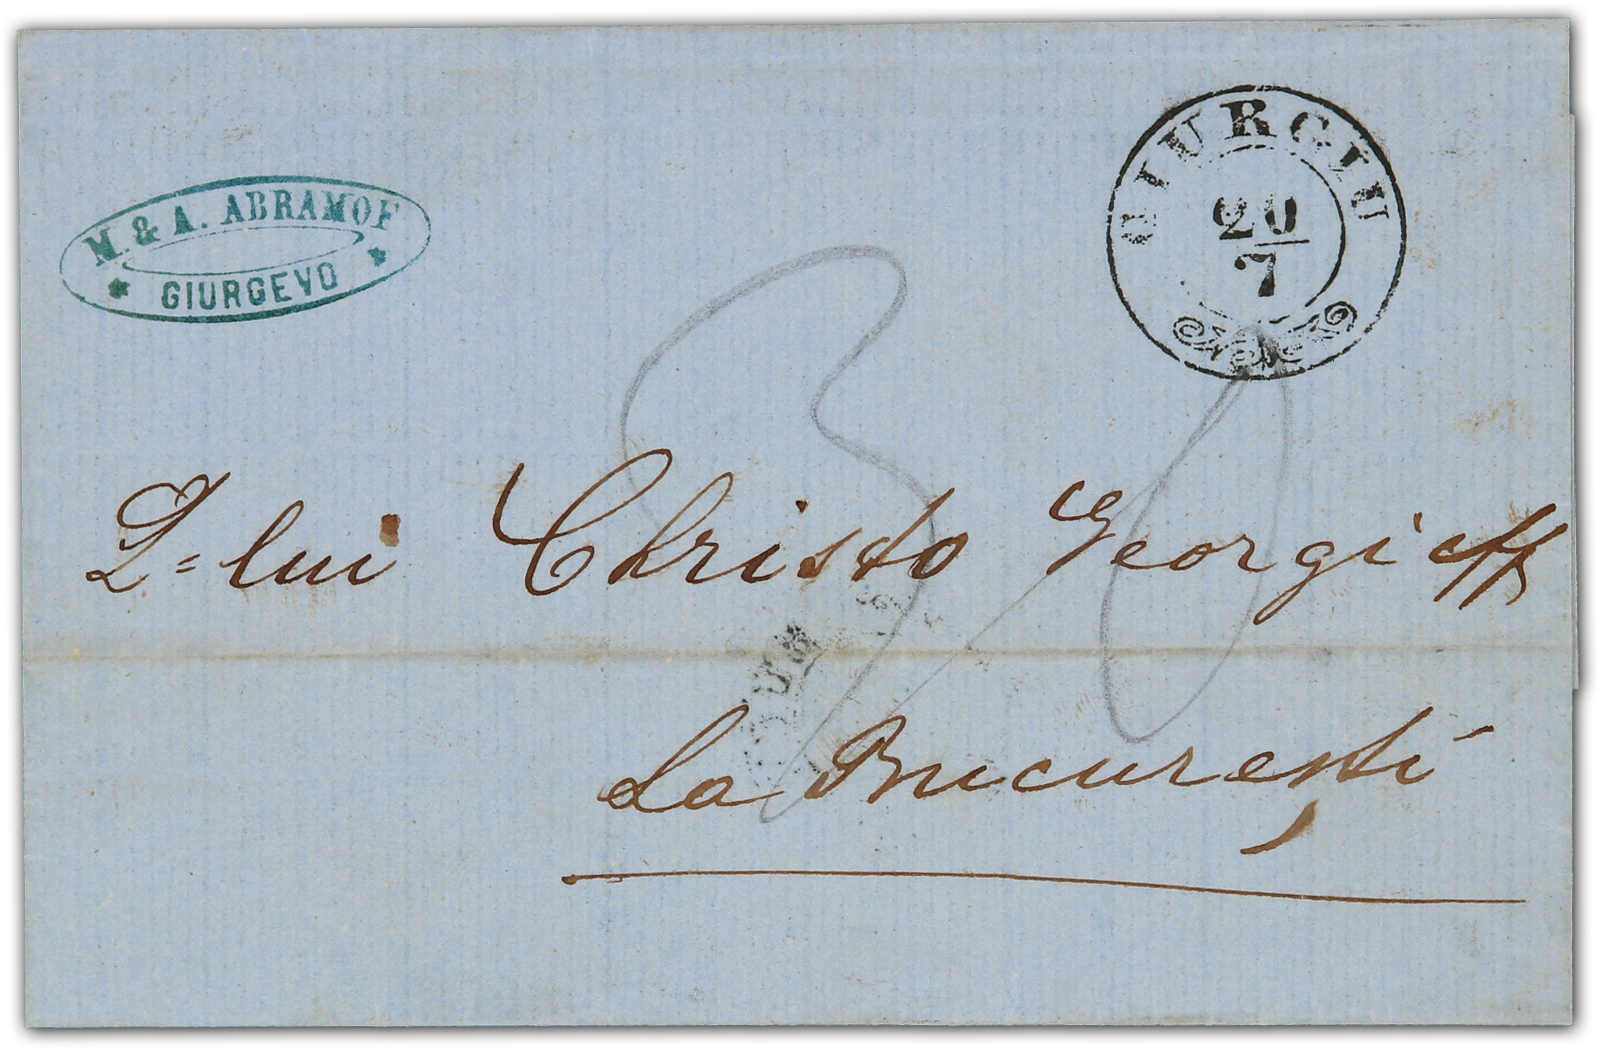 M. & A. ABRAMOF
* GIURGEVO *
GIURGIU
20
7
30
D= lui Christo Georgieff
La Bucureşti